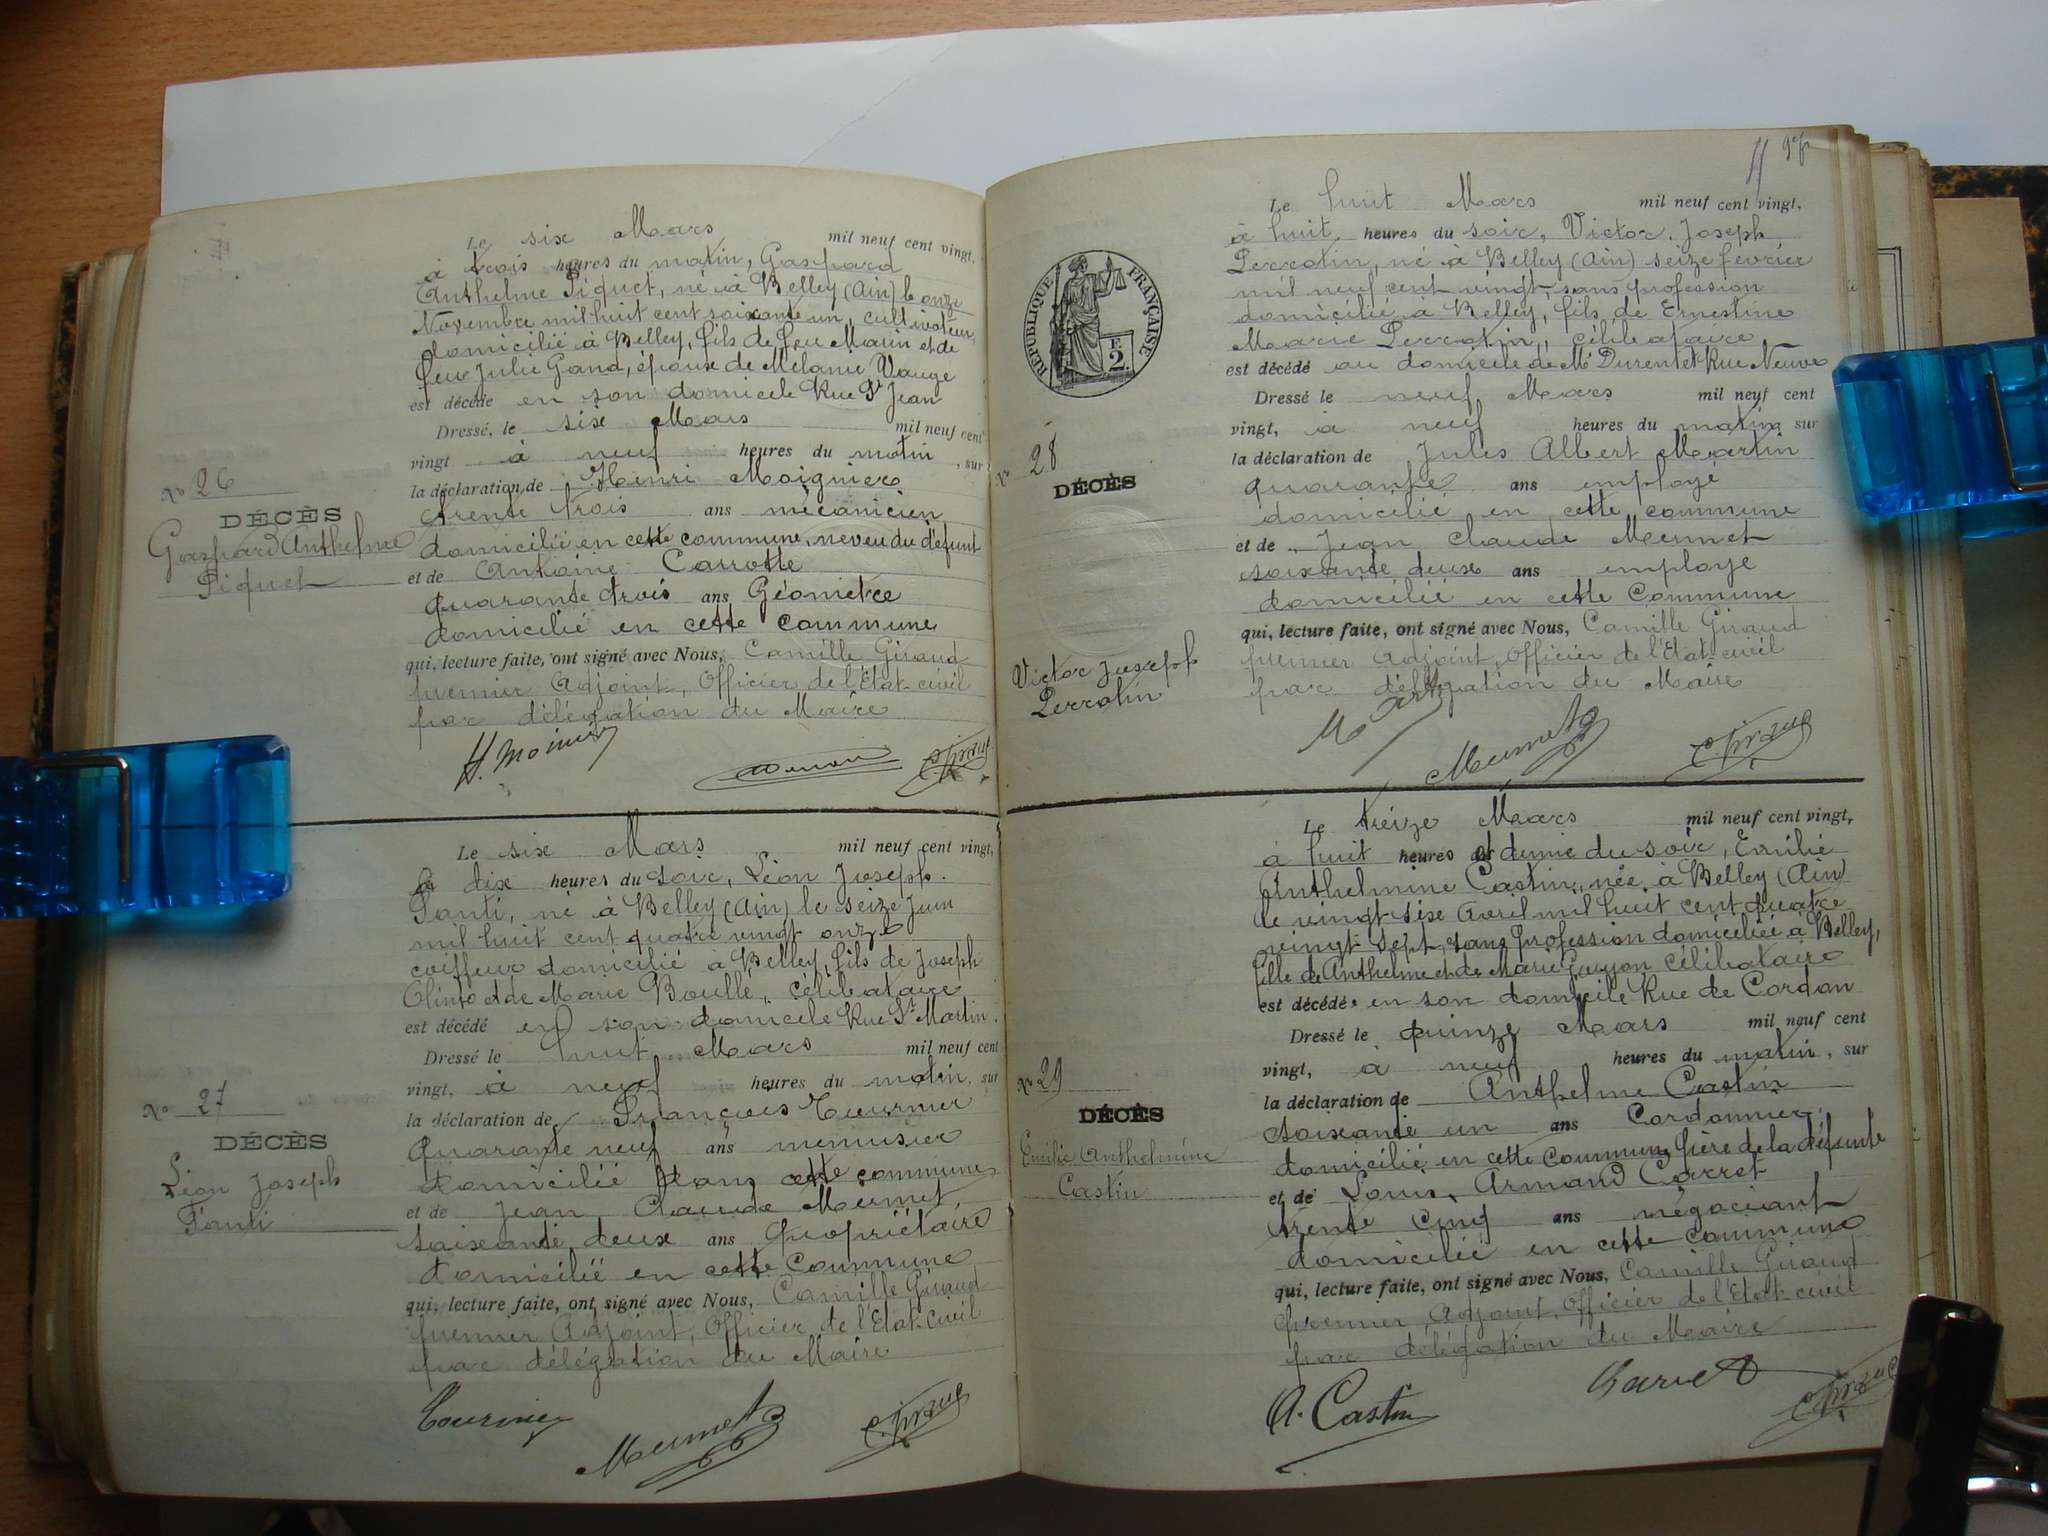 Le six Mars mil neuf cent vingt,
à trois heures du matin, Gaspard
Anthelme Piquet, né à Belley (Ain) le onze
Novembre mil huit cent soixante un, cultivateur,
domicilié à Belley, fils de feu Marin et de
feue Julie Gand, époux de Mélanie Vauge
est décédé en son domicile Rue St Jean
Dressé, le six Mars mil neuf cent
vingt à neuf heures du matin, sur
la déclaration de Henri Moignier
trente trois ans mécanicien
domicilié en cette commune, neveu du défunt
et de Antoine Carrotte
quarante trois ans Géomètre
domicilié en cette commune
qui, lecture faite, ont signé avec Nous, Camille Giraud
premier Adjoint, Officier de l'Etat-civil
par délégation du Maire
No 26
DÉCÈS
Gaspard Anthelme
Piquet
Le six Mars mil neuf cent vingt,
à dix heures du soir, Léon Joseph
Panti, né à Belley (Ain) le seize Juin
mil huit cent quatre vingt onze
coiffeur domicilié à Belley, fils de Joseph
Olinto et de Marie Boullé, célibataire
est décédé en son domicile Rue St Martin.
Dressé le huit Mars mil neuf cent
vingt, à neuf heures du matin, sur
la déclaration de François Tournier
quarante neuf ans menuisier
domicilié dans cette commune
et de Jean Claude Mermet
soixante deux ans propriétaire
domicilié en cette Commune
qui, lecture faite, ont signé avec Nous, Camille Giraud
premier Adjoint, Officier de l'Etat-civil
par délégation du Maire
Tournier
Mermet
C. Giraud
No 27
DÉCÈS
Léon Joseph
Panti
97
RÉPUBLIQUE FRANÇAISE
F. 2.
Le huit Mars mil neuf cent vingt,
à huit heures du soir, Victor Joseph
Perrotin, né à Belley (Ain) seize février
mil neuf cent vingt, sans profession
domicilié à Belley, fils de Ernestine
Marie Perrotin, célibataire
est décédé au domicile de Me Durentet Rue Neuve
Dressé le neuf Mars mil neuf cent
vingt, à neuf heures du matin sur
la déclaration de Jules Albert Martin
quarante ans employé
domicilié en cette commune
et de Jean Claude Mermet
soixante deux ans employé
domicilié en cette Commune
qui, lecture faite, ont signé avec Nous, Camille Giraud
premier Adjoint, Officier de l'Etat-civil
par délégation du Maire
Mermet
C. Giraud
No 28
DÉCÈS
Victor Joseph
Perrotin
Le treize Mars mil neuf cent vingt,
à huit heures et demie du soir, Emilie
Anthelmine Castin, née à Belley (Ain)
le vingt six Avril mil huit cent quatre
vingt sept, sans profession domiciliée à Belley,
fille de Anthelme et de Marie Guyon célibataire
est décédée en son domicile Rue de Cordon
Dressé le quinze Mars mil neuf cent
vingt, à neuf heures du matin, sur
la déclaration de Anthelme Castin
soixante un ans Cordonnier,
domicilié en cette commune, père de la défunte
et de Louis, Armand Carret
trente cinq ans négociant
domicilié en cette commune
qui, lecture faite, ont signé avec Nous, Camille Giraud
premier Adjoint, Officier de l'Etat-civil
par délégation du Maire
A. Castin
Carret
C. Giraud
No 29
DÉCÈS
Emilie Anthelmine
Castin